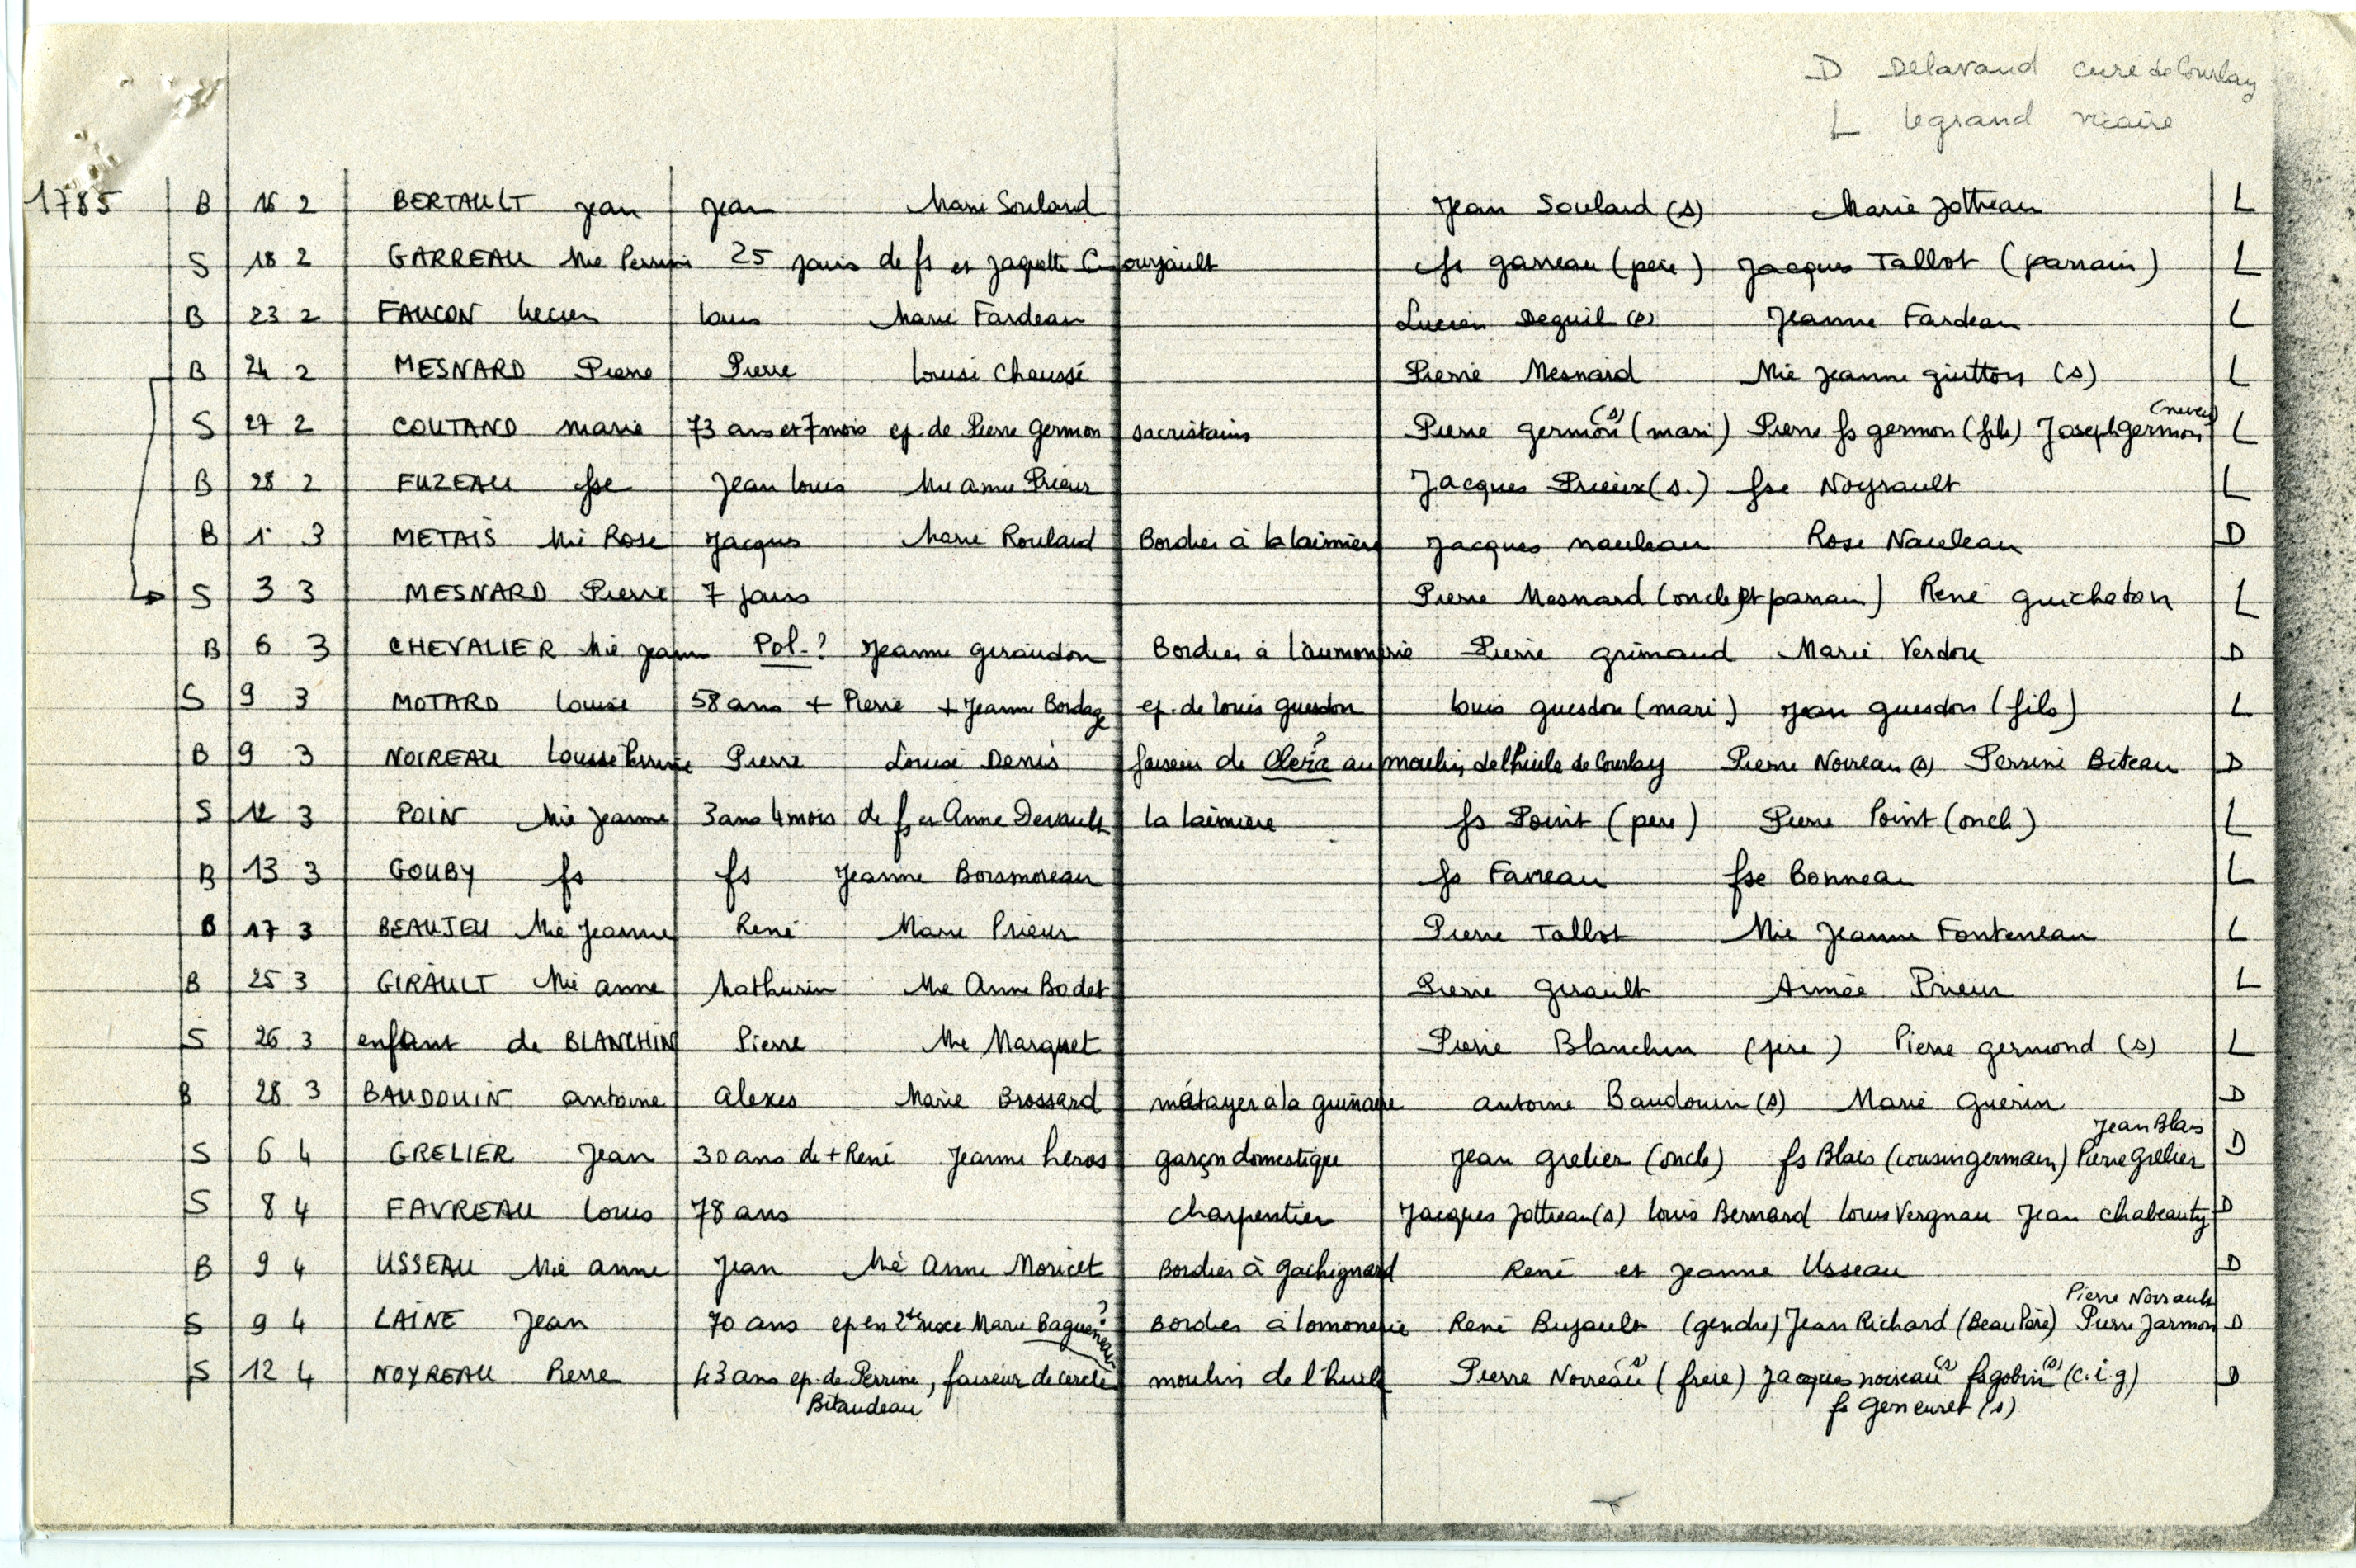 D Delavaud curé de Courlay
L legrand vicaire
1785 B 16 2 BERTAULT Jean Jean Marie Soulard Jean Soulard (s) Marie Jottreau L
S 18 2 GARREAU Mie Perrine 25 jours de fs et Jaquette Courjault fs garreau (père) Jacques Tallot (parrain) L
B 23 2 FAUCON Lucien Louis Marie Fardeau Lucien Deguil (s) Jeanne Fardeau L
B 24 2 MESNARD Pierre Pierre Louise Chaussé Pierre Mesnard Mie Jeanne guitton (s) L
S 27 2 COUTAND marie 73 ans et 7 mois ep. de Pierre germon sacristain Pierre germon (s) (mari) Pierre fs germon (fils) Joseph germon (neveu) L
B 28 2 FUZEAU fse Jean Louis Mie anne Prieur Jacques Prieur (s.) fse Noyrault L
B 1 3 METAIS Mie Rose Jacques Marie Roulard Bordier à la laimière Jacques nauleau Rose Nauleau D
S 3 3 MESNARD Pierre 7 jours Pierre Mesnard (oncle et parrain) René guicheton L
B 6 3 CHEVALIER Mie Jeanne Pol-? Jeanne geraudon Bordier à l'aumonerie Pierre grimaud Marie Verdon D
S 9 3 MOTARD Louise 58 ans + Pierre + Jeanne Bordage ep. de louis guesdon louis guesdon (mari) Jean guesdon (fils) L
B 9 3 NOIREAU Louise Perrine Pierre Louise Denis faiseur de ? au moulin de l'huile de Courlay Pierre Noireau (s) Perrine Biteau D
S 12 3 POIN Mie Jeanne 3 ans 4 mois de fs et Anne Devault la laimière fs Point (père) Pierre Point (oncle) L
B 13 3 GOUBY fs fs Jeanne Boismoreau fs Favreau fse Bonneau L
B 17 3 BEAUJEU Mie Jeanne René Marie Prieur Pierre Tallot Mie Jeanne Fonteneau L
B 25 3 GIRAULT Mie anne Mathurin Mie Anne Bodet Pierre girault Aimée Prieur L
S 26 3 enfant de BLANCHIN Pierre Mie Marquet Pierre Blanchin (père) Pierre germond (s) L
B 28 3 BAUDOUIN antoine alexes Marie Brossard métayer à la antoine Baudouin (s) Marie guerin D
Jean Blais
S 6 4 GRELIER Jean 30 ans de + René Jeanne heros garçon domestique Jean grelier (oncle) fs Blais (cousin germain) Pierre grelier D
S 8 4 FAVREAU Louis 78 ans charpentier Jacques Jottreau (s) louis Bernard louis Vergnau Jean chabeauty D
B 9 4 USSEAU Mie anne Jean Mie Anne Moricet Bordier à gachignard René et Jeanne Usseau D
Pierre Noirault
S 9 4 LAINE Jean 70 ans ep en 2de noce Marie Bagueneau? Bordier à lomonerie René Bujault (gendre) Jean Richard (Beau Père) Pierre Jarmon D
S 12 4 NOYREAU Pierre 43 ans ep. de Perrine, faiseur de cercle moulin de l'huile Pierre Noireau (s) (frère) Jacques noireau (s) fs gobin (s) (c.i.g) D
Bitaudeau fs Geneuret (s)